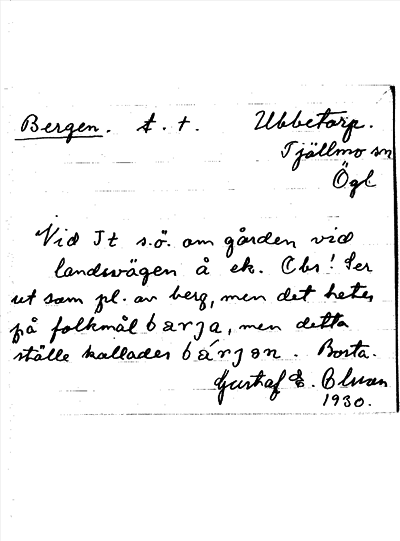 Bergen. t. t. Ubbetorp.
Tjällmo sn
Ögl
Vid It s.ö. om gården vid
landsvägen å ek. Obs! Ser
ut som pl. av berg, men det hetes
på folkmål bærja, men detta
ställe kallades bǽrjen. Borta.
Gustaf E.
1930.